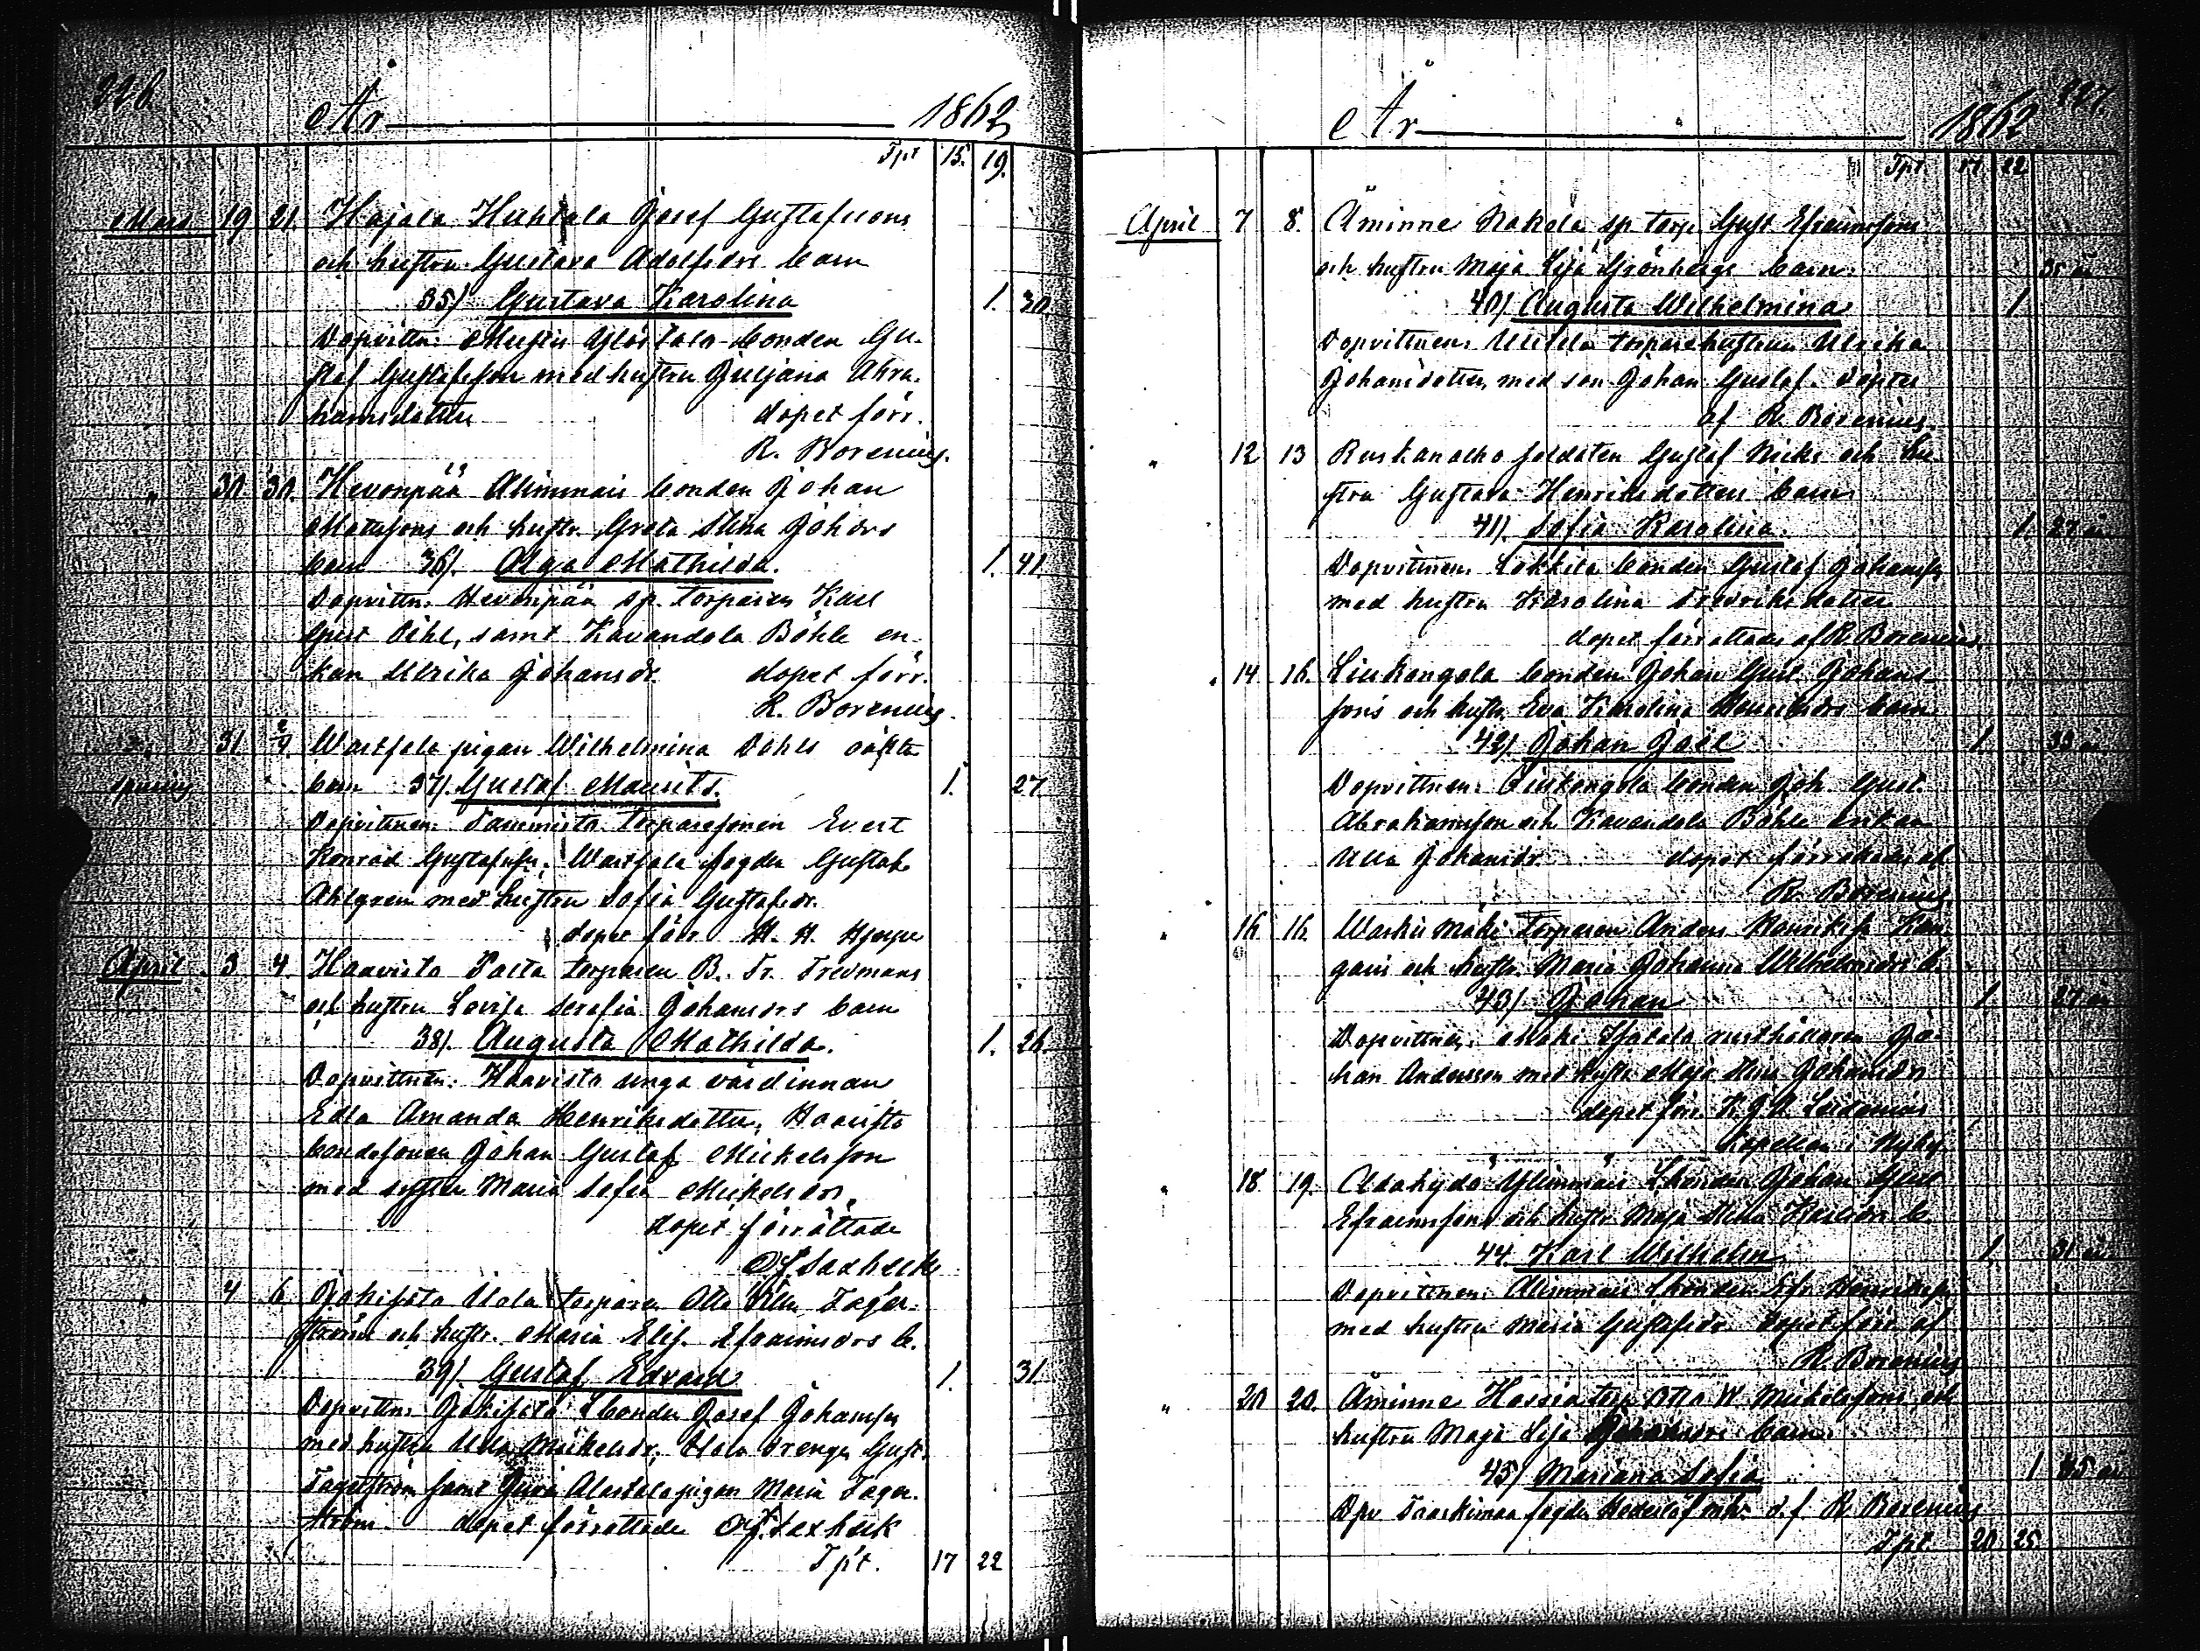 226
År 1862
Tpt 15. 19.
Mars 19 21. Hajala Huhtala Josef Gustafssons
och hustru Gustava Adolfsdrs barn
35). Gustava Karolina 1. 30
Dopvittn: bonden Gu-
staf Gustafsson med hustru Juljana Abra-
hamsdotter dopet förr.
R. Borenius.
" 30 30. Hevonpää Alimmais bonden Johan
Matsssons och hustr. Greta Stina Johdrs
barn 36). Olga Mathilda. 1. 41
Dopvittn: Hevonpää sp. torparen Karl
Gust Pihl, samt Kavandola Böhle en-
kan Ulrika Johansdr. dopet förr.
R. Borenius.
" 31. 2/4 pigan Wilhelmina Dahls oäkta
barn 37). Gustaf Maurits. 1. 27
Dopvittnen: Tammisto torparesonen Evert
Konrad Gustafsson, fogden Gustaf
Ahlgren med hustru Sofia Gustafsdr.
dopet förr H. H. Hjerpe
April 3 4 Haavisto torparen B. Fr. Fredmans
och hustru Lovisa Serafia Johansdrs barn
38). Augusta Mathilda. 1. 26
Dopvittnen: Haavisto unga värdinnan
Edla Amanda Henriksdotter, Haavisto
bondesonen Johan Gustaf Mickelsson
med syster Maria Sofia Mickelsdr.
dopet förrättade

" 4 6 Uola torparen Otto Wilh Fager-
ströms och hustr. Maria Elis. Efraimsdrs b.
39). Gustaf Edvard 1. 31
Dopvittn: bonden Josef Johansson
med hustru Ulla Mickelsdr, Uola drengen Gust.
Fagerström samt pigan Maria Fager-
ström. dopet förrättade
Tp't. 17 22
227
År 1862
Tpt. 17 22
April 7 8. Åminne Nakola sp torp. Gust Efraimssons
och hustru Maja Lisa Grönbergs barn 35 år
40). Augusta Wilhelmina 1
Dopvittnen: torparehustrun Ulrika
Johansdotter, med son Johan Gustaf. Döptes
af R. Borenius.
" 12 13 soldaten Gustaf och hu-
stru Gustava Henriksdotters barn
41). Sofia Karolina. 1. 27 år
Dopvittnen: bonden Gustaf Johansson
med hustru Karolina Fredriksdotter
dopet förrättades af R. Borenius.
" 14 16. Liukangola bonden Johan Gust Johans-
sons och hustr. Eva Karolina Henriksdrs barn
42). Johan Joel 1. 33 år
Dopvittnen: Liukongola bonden Joh. Gust.
Abrahamsson och Kavandola Böhle enkan
Ulla Johansdr. dopet förrättades af
R. Borenius.
" 16 16. Mäki torparen Anders Henriksson Kan-
gais och hustr. Maria Johanna Wilhelmsdrs b.
43). Johan 1. 27 år
Dopvittnen: Mäki rusthållaren Jo-
han Andersson med hustr Maja Stina Johansdr
dopet förr K. J. A.
kapellan i Nyby.
" 18 19. bonden Johan Gust
Efraimssons och hustr Maja Stina Karlsdrs b.
44. Karl Wilhelm 1. 31 år
Dopvittnen: bonden Efr. Henriksson
med hustru Maria Gustafsdr. Dopet förr af
R. Borenius
" 20 20. Åminne Hossia torp Otto W. Mickelssons och
hustru Maja Lisa Johansdrs barn
45) Mariana Sofia 1 35 år
Dpv fogden d. f. R. Borenius
Tpt. 20 25.